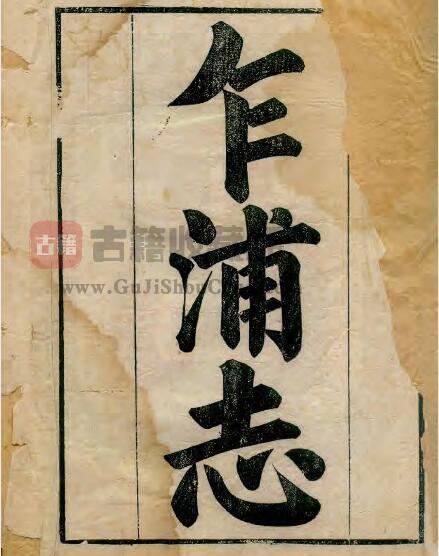 乍浦志
古籍
古籍收
www.GuJiShouC